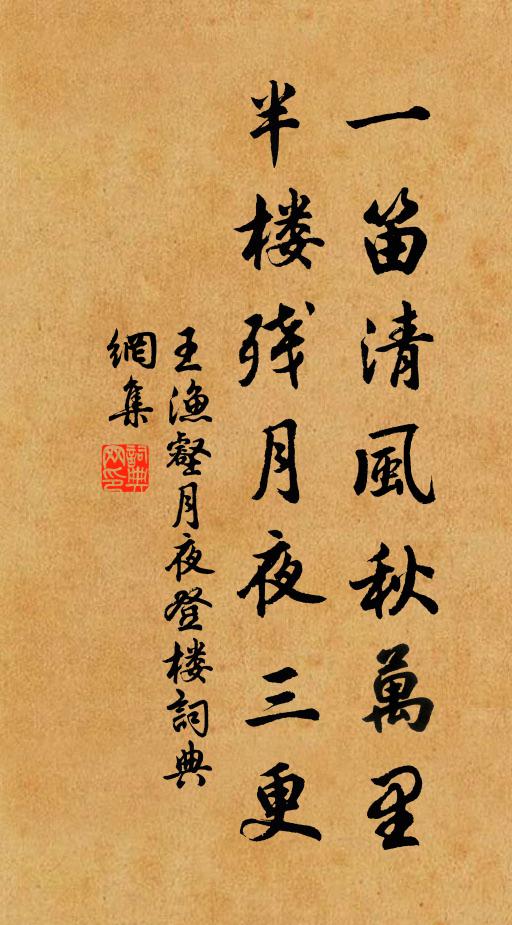 一笛清風秋萬里
半楼残月夜三更
王漁壑月夜登楼詞典
網集
詞典
网印